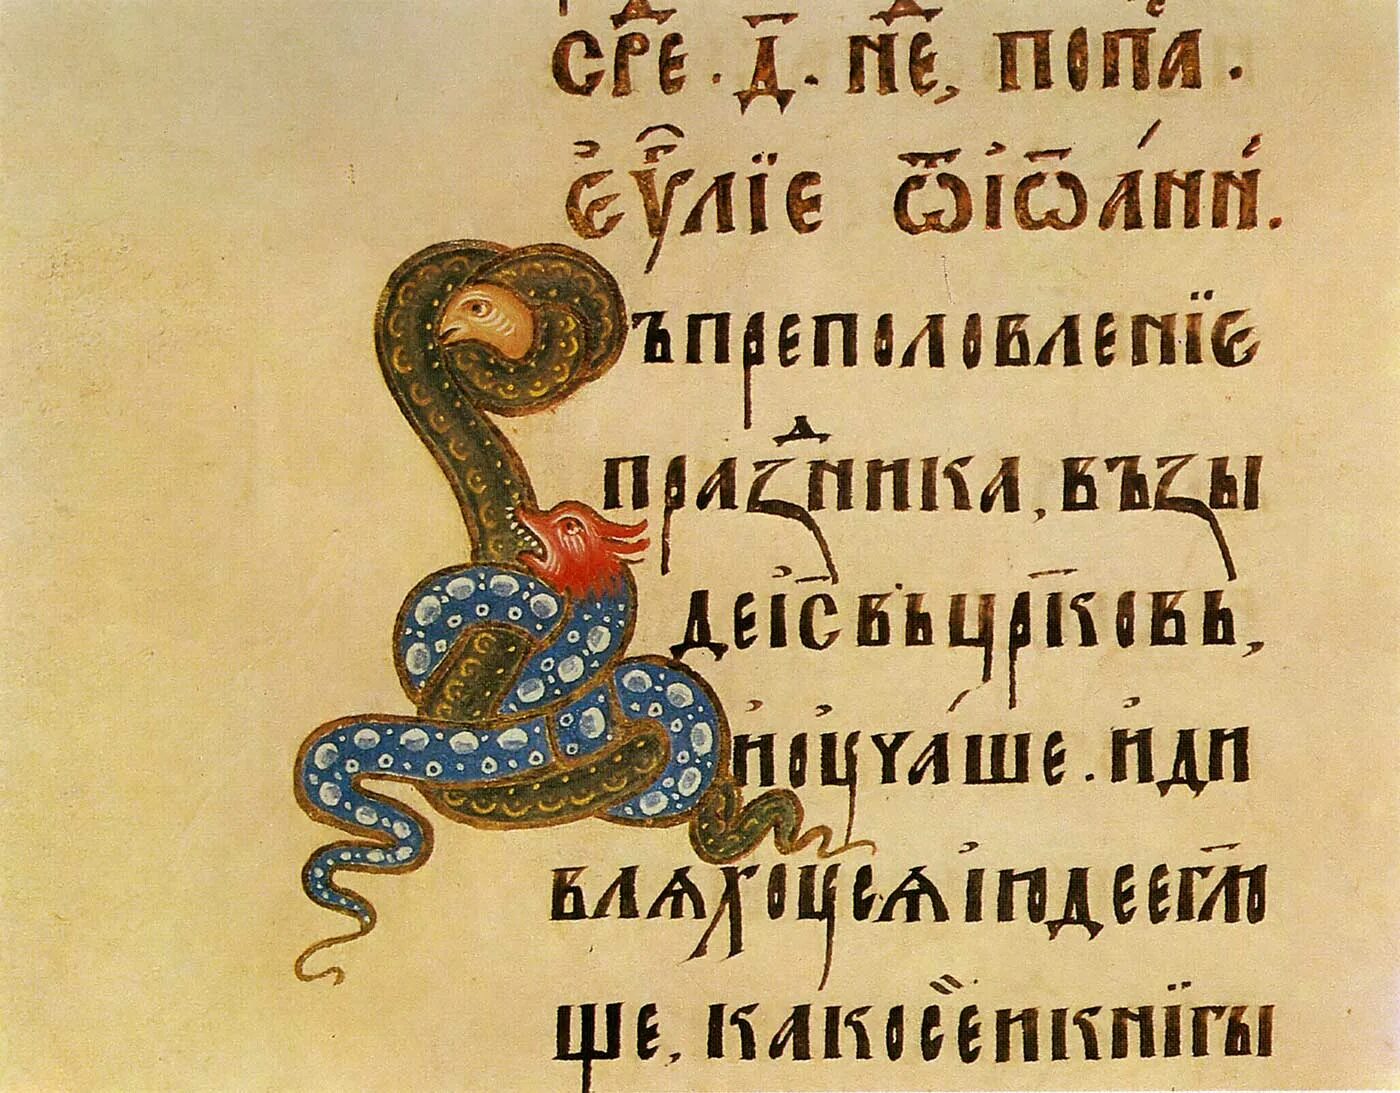 срⷣе · д҃ · нⷣе, попа҆ ·
є҆у҆лїе ѿі҆ѡ҃а́нн҆.
ъпреполовленїе
праⷣзника, възы
деі҆с҃въцр҃ковь,
и҆о҆учѧ́ше. и҆ди
влѧхоусѧі҆юдеегл҃ю
ще, какосе́икнїгы